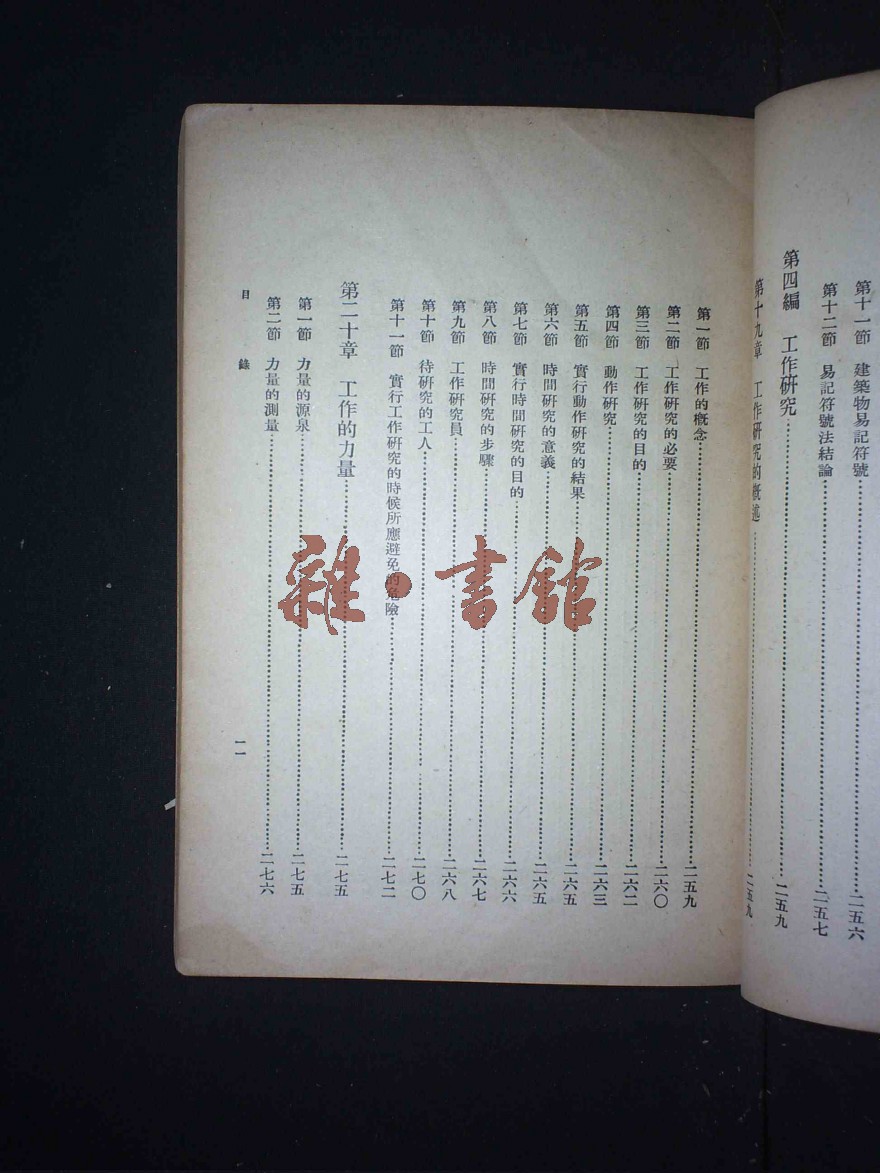 第十一節　建築物易記符號……二五六
第十二節　易記符號法結論……二五七
第四編　工作研究……二五九
第十九章　工作研究的概述……二五九
第一節　工作的概念……二五九
第二節　工作研究的必要……二六〇
第三節　工作研究的目的……二六二
第四節　動作研究……二六三
第五節　實行動作研究的結果……二六五
第六節　時間研究的意義……二六五
第七節　實行時間研究的目的……二六六
第八節　時間研究的步驟……二六七
第九節　工作研究員……二六八
第十節　待研究的工人……二七〇
第十一節　實行工作研究的時候所應避免的危險……二七二
第二十章　工作的力量……二七五
第一節　力量的源泉……二七五
第二節　力量的測量……二七六
目錄
一一
雜·書館